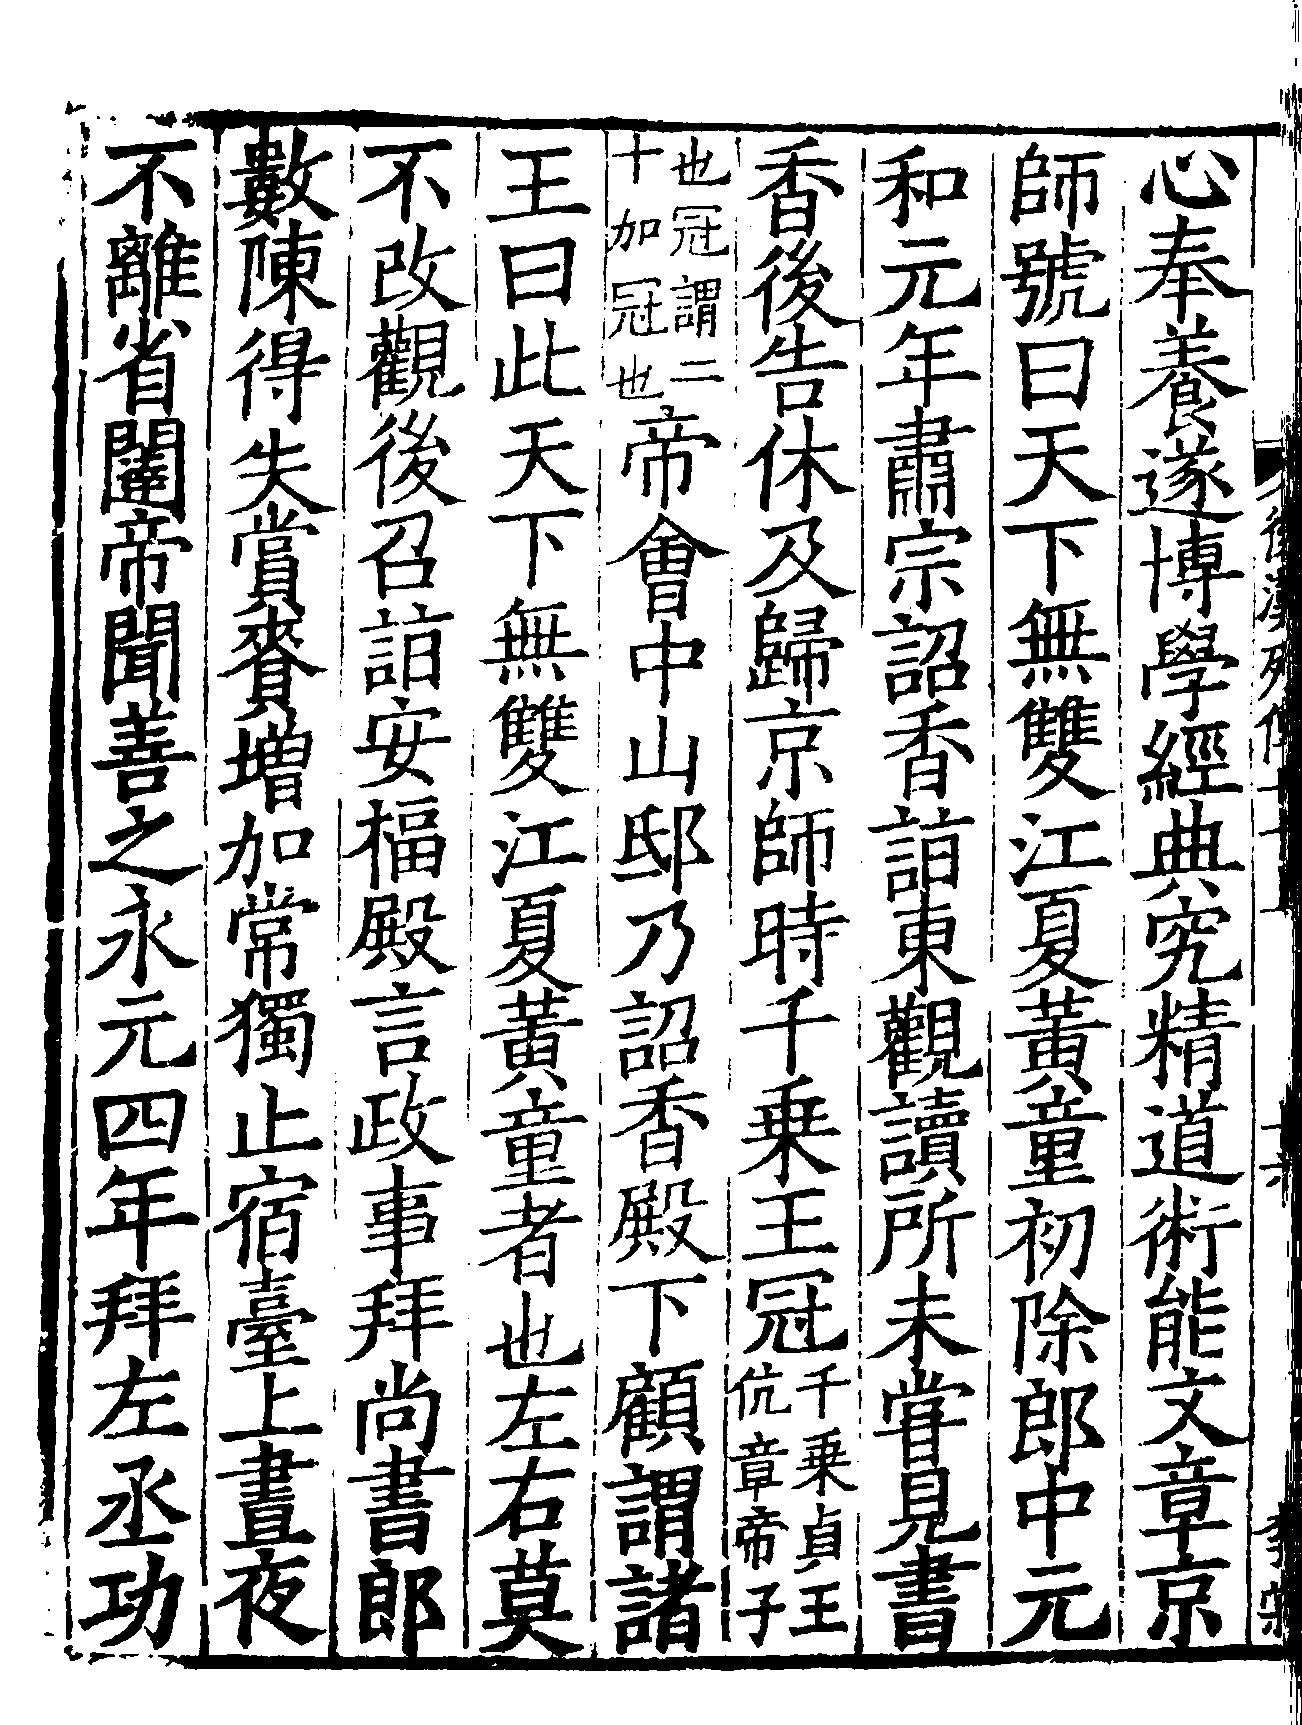 心奉養遂博學經典究精道術能文章京
師號曰天下無雙江夏黃童初除郎中元
和元年肅宗詔香詣東觀讀所未嘗見書
香後告休及歸京師時千乗王冠千乗貞王
伉章帝子
也冠謂二
十加冠也帝會中山邸乃詔香殿下顧謂諸
王曰此天下無雙江夏黃童者也左右莫
不改觀後召詣安福殿言政事拜尚書郎
數陳得失賞賚增加常獨止宿臺上晝夜
不離省闥帝聞善之永元四年拜左丞功